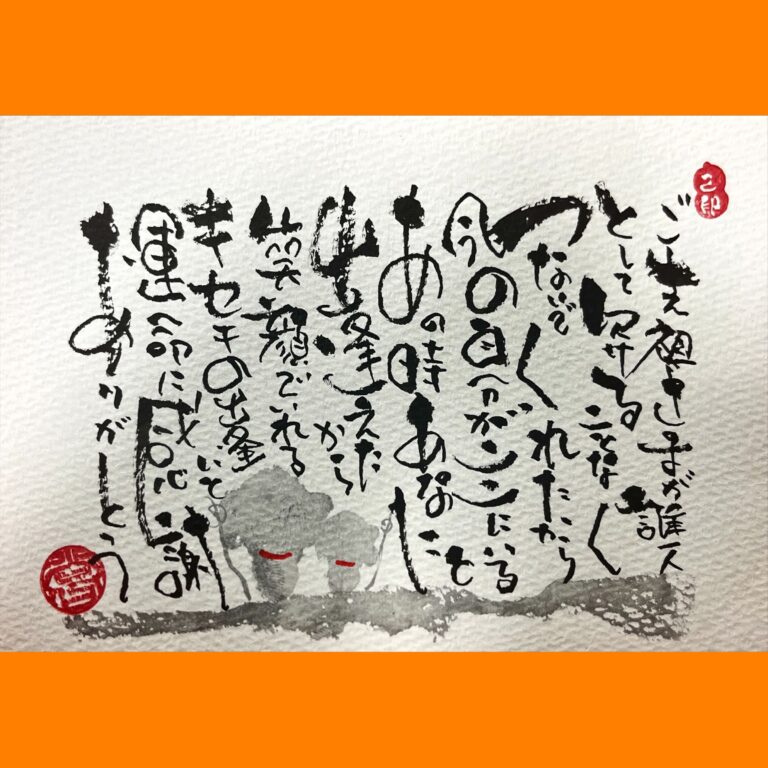 ご先祖さまが誰一人
として欠けることなく
つないでくれたから
今の自分がココにいる
あの時あなたと
出逢えたから
笑顔でいれる
キセキの出逢いと
運命に感謝
ありがとう